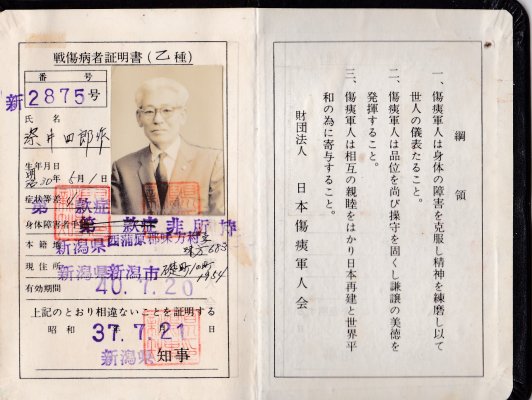 戦傷病者証明書(乙種)
番号
新2875号
氏名
井四郎作
生年月日
明治30年5月1日
症状等差
第 款症
身体障害者手
第 款症 非所持
本籍
新潟県西蒲原郡味方村
現住所
新潟県新潟市
有効期間
40.7.20
上記のとおり相違ないことを証明する
昭和 37.7.21
新潟県知事
綱領
一、傷痍軍人は身体の障害を克服し精神を練磨し以て
世人の儀表たること。
二、傷痍軍人は品位を尚び操守を固くし謙譲の美徳を
発揮すること。
三、傷痍軍人は相互の親睦をはかり日本再建と世界平
和の為に寄与すること。
財団法人 日本傷痍軍人会